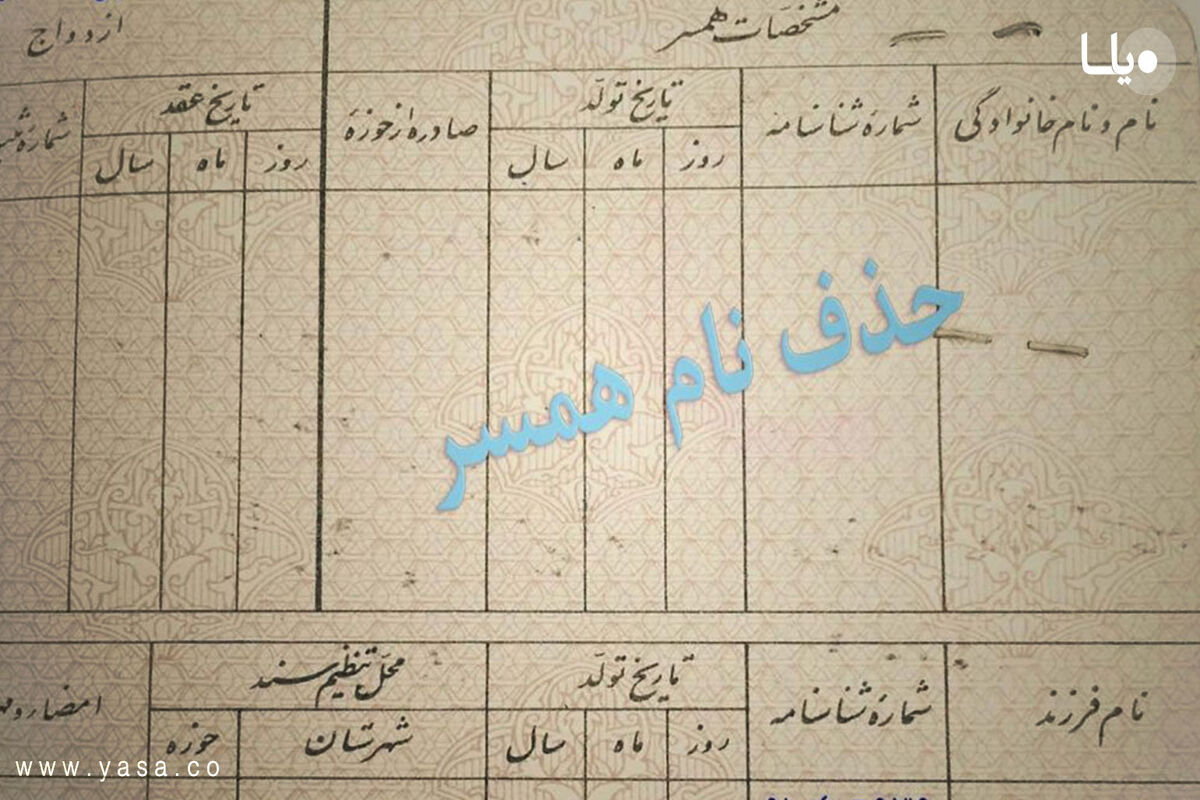 یاسا
مشخصات همسر
ازدواج
نام و نام خانوادگی
شماره شناسنامه
تاریخ تولد
صادره از حوزه
تاریخ عقد
روز ماه سال
روز ماه سال
حذف نام همسر
نام فرزند
شماره شناسنامه
تاریخ تولد
محل تنظیم سند
روز ماه سال
شهرستان
حوزه
www.yasa.co